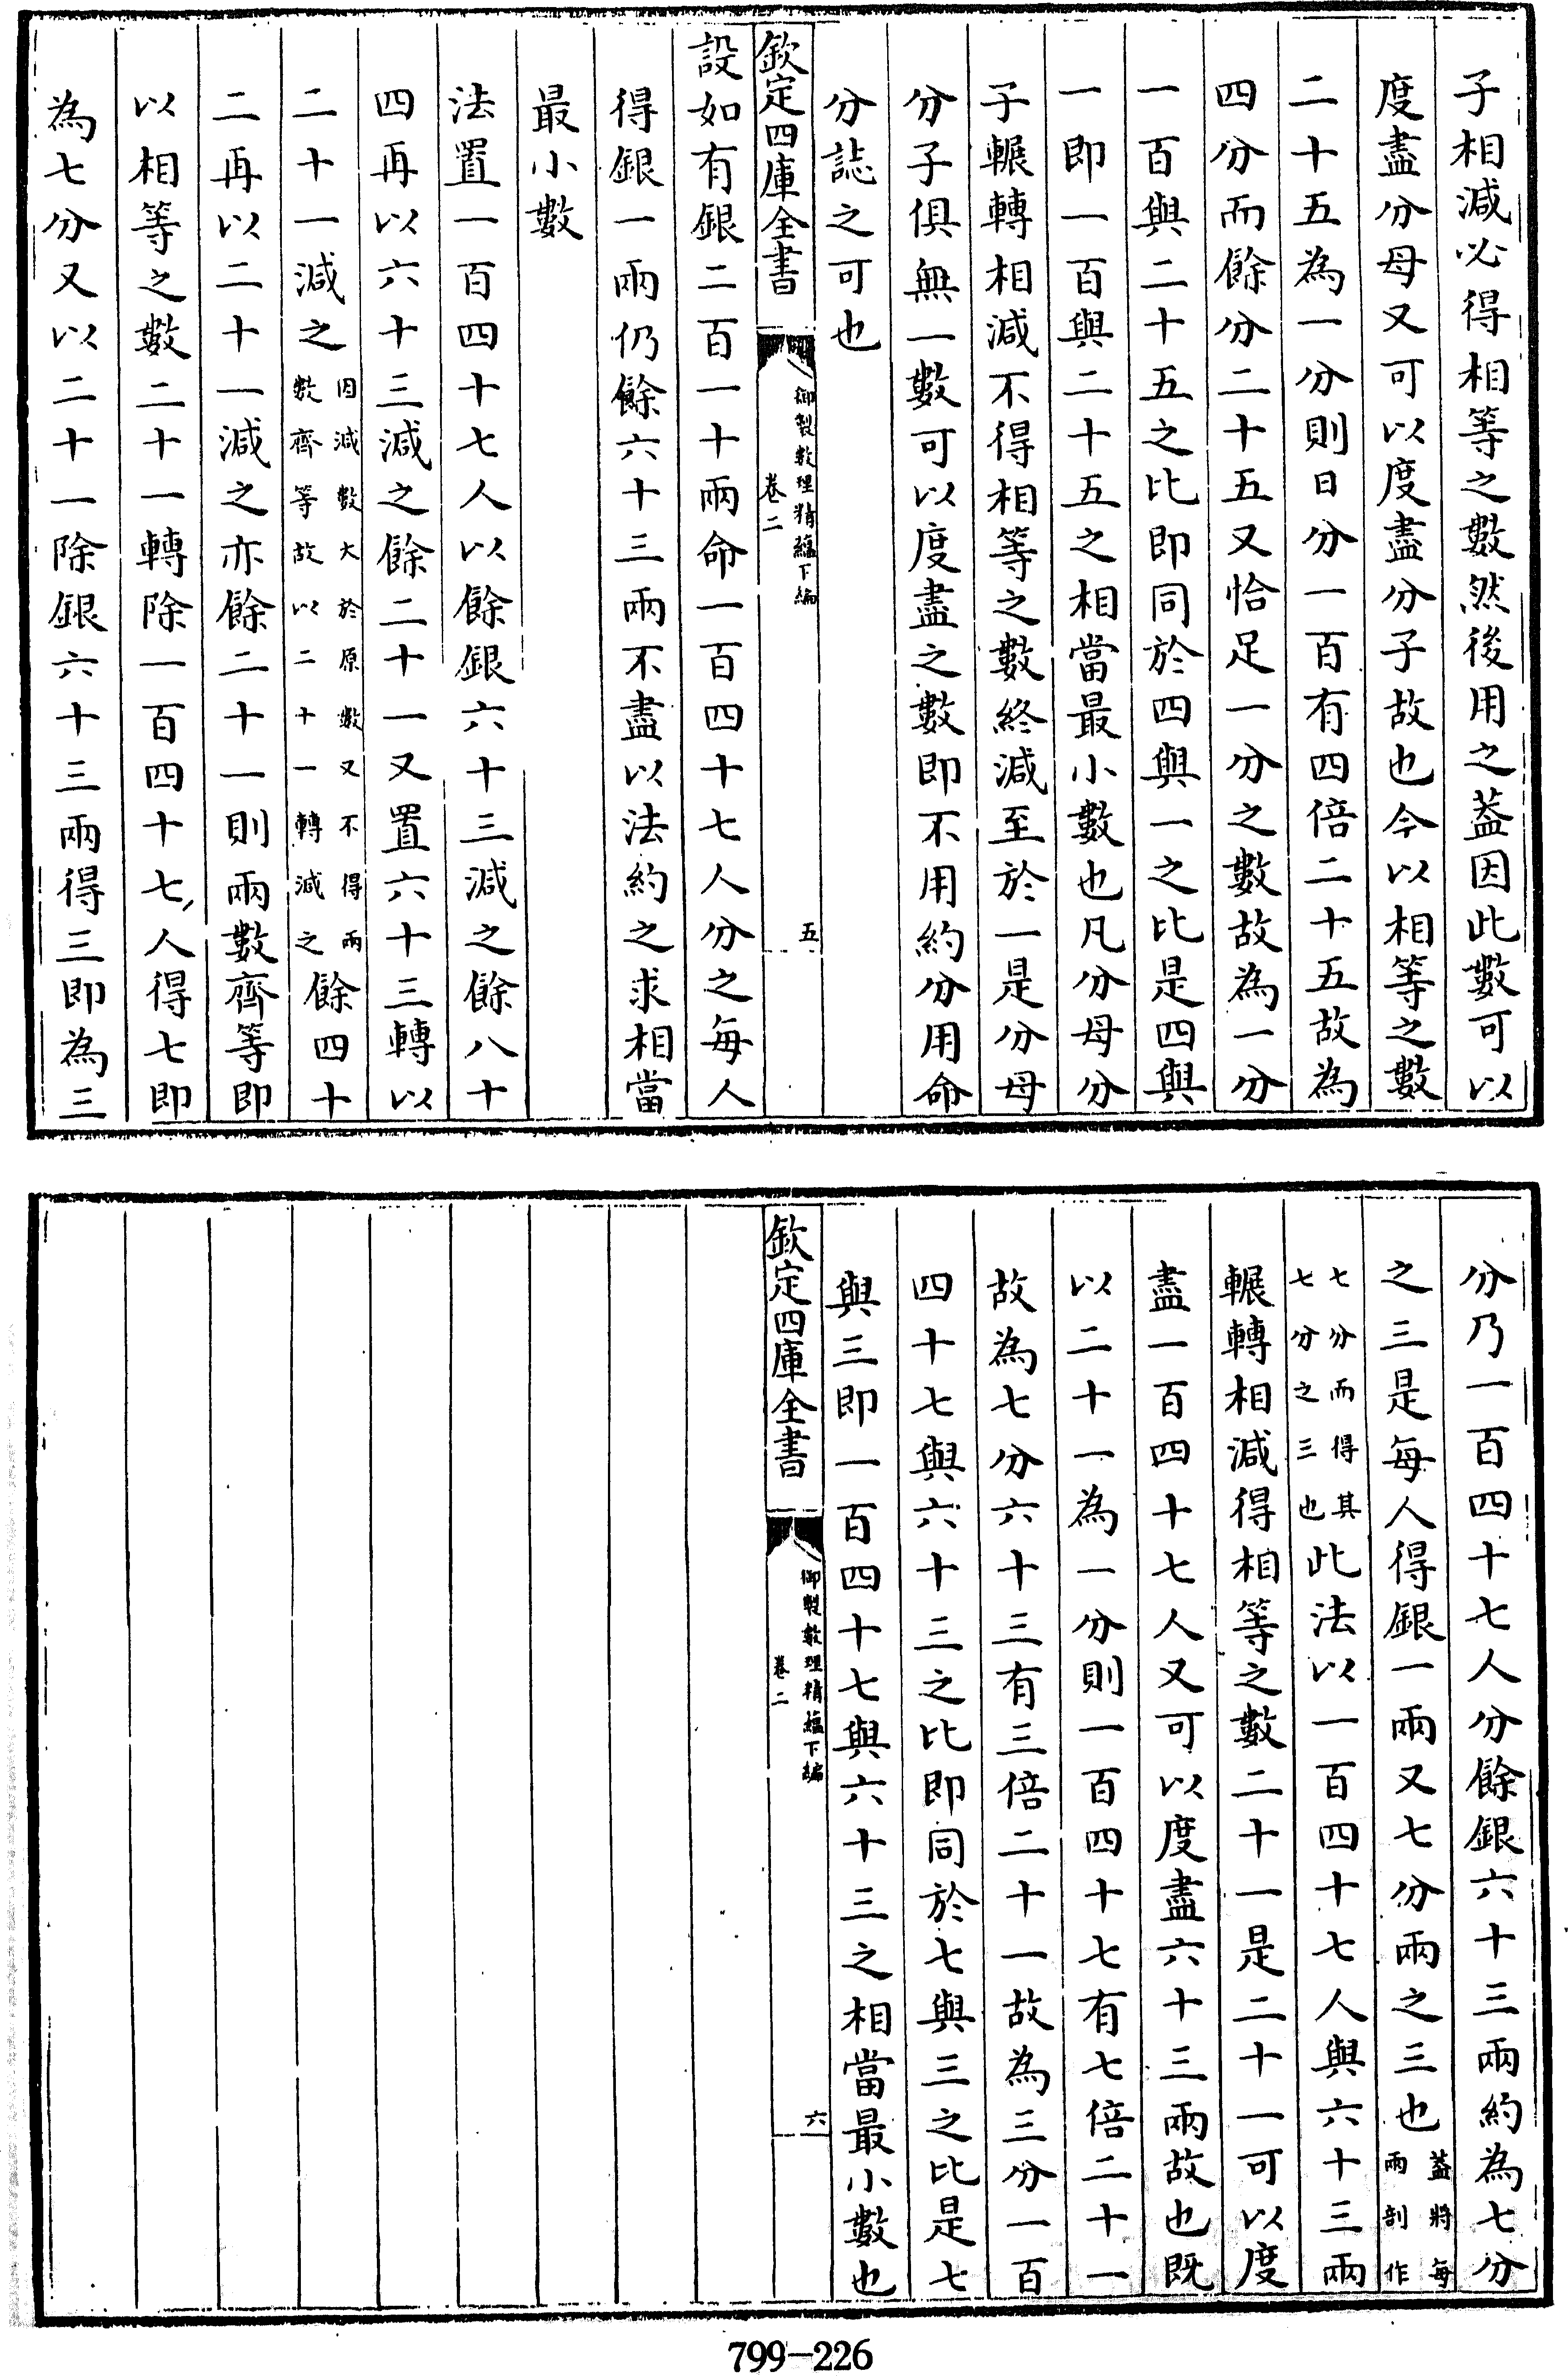 子相減必得相等之數然後用之葢因此數可以
度盡分母又可以度盡分子故也今以相等之數
二十五為一分則日分一百有四倍二十五故為
四分而餘分二十五又恰足一分之數故為一分
一百與二十五之比即同於四與一之比是四與
一即一百與二十五之相當最小數也凡分母分
子輾轉相減不得相等之數終減至於一是分母
分子俱無一數可以度盡之數即不用約分用命
分誌之可也
欽定四庫全書
御製數理精蘊下編
卷二
五
設如有銀二百一十兩命一百四十七人分之每人
得銀一兩仍餘六十三兩不盡以法約之求相當
最小數
法置一百四十七人以餘銀六十三減之餘八十
四再以六十三減之餘二十一又置六十三轉以
二十一減之因減數大於原數又不得兩數齊等故以二十一轉減之餘四十
二再以二十一減之亦餘二十一則兩數齊等即
以相等之數二十一轉除一百四十七人得七即
為七分又以二十一除銀六十三兩得三即為三
分乃一百四十七人分餘銀六十三兩約為七分
之三是每人得銀一兩又七分兩之三也葢將每兩剖作
七分而得其七分之三也此法以一百四十七人與六十三兩
輾轉相減得相等之數二十一是二十一可以度
盡一百四十七人又可以度盡六十三兩故也既
以二十一為一分則一百四十七有七倍二十一
故為七分六十三有三倍二十一故為三分一百
四十七與六十三之比即同於七與三之比是七
與三即一百四十七與六十三之相當最小數也
欽定四庫全書
御製數理精蘊下編
卷二
六
799-226